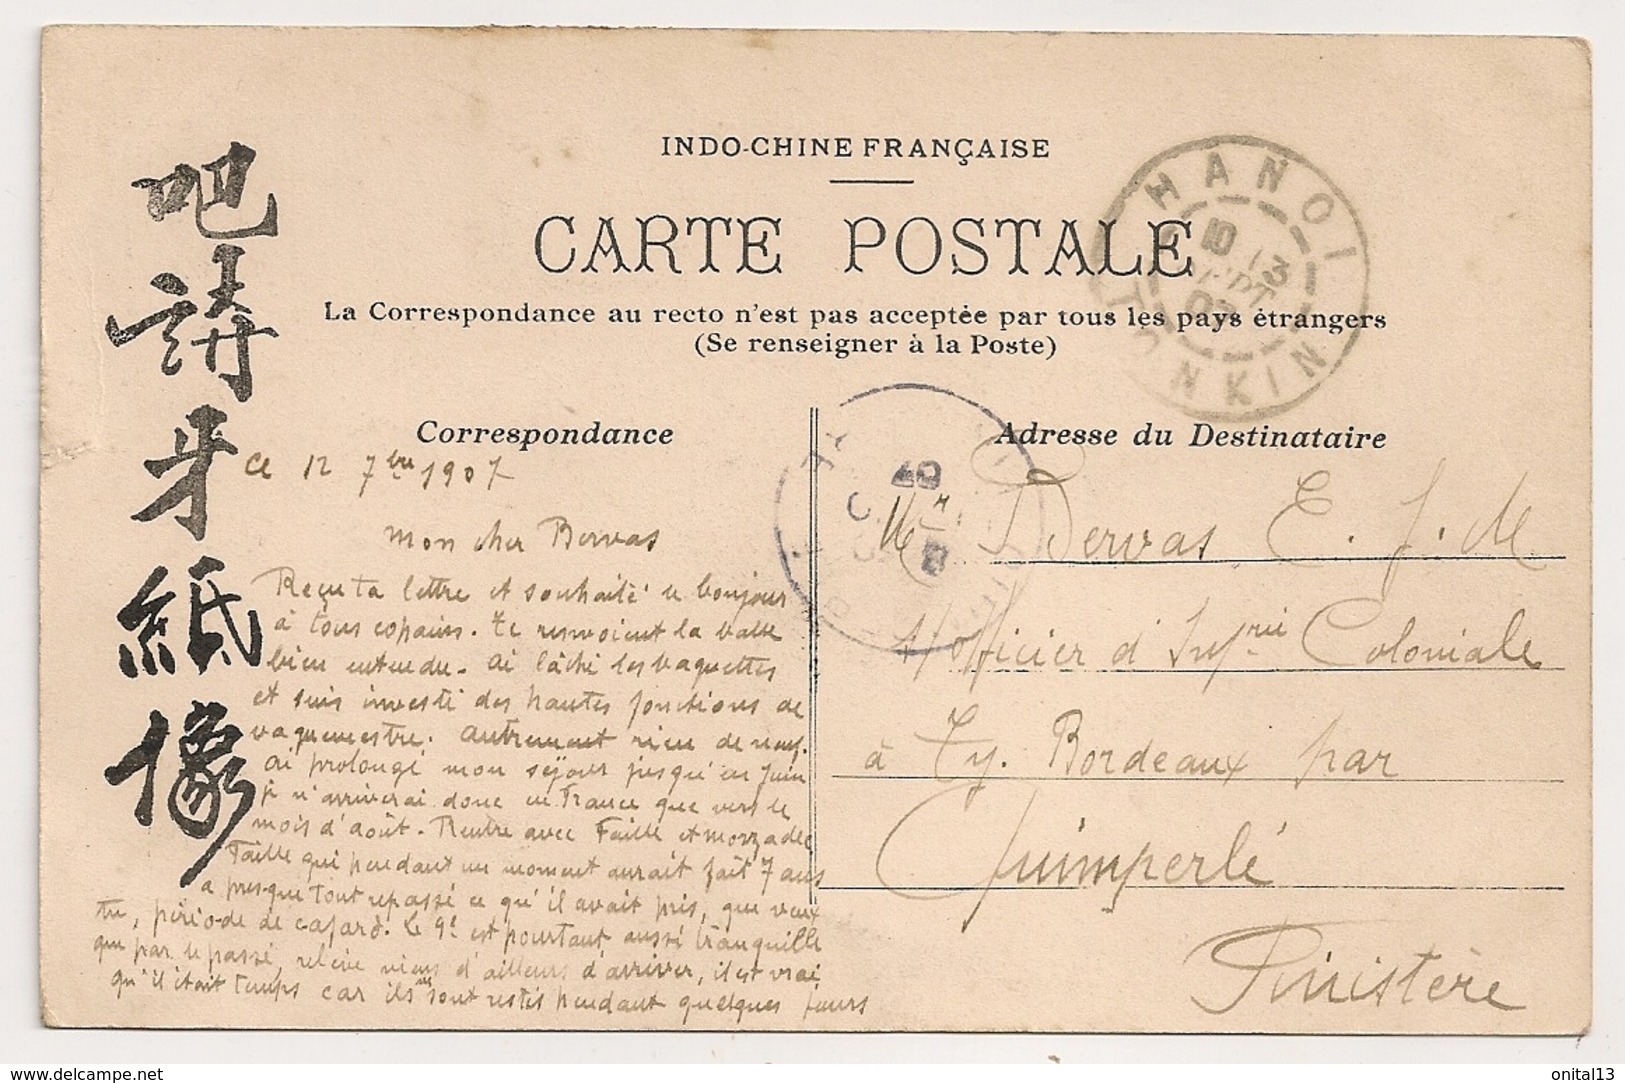 INDO-CHINE FRANÇAISE
CARTE POSTALE
La Correspondance au recto n'est pas acceptée par tous les pays étrangers
(Se renseigner à la Poste)
HANOI
10
13
SEPT
07
TONKIN
吧
請
牙
紙
像
Correspondance
ce 12 7bre 1907
Mon cher Bervas
Reçu ta lettre et souhaité le bonjour
à tous copains. Te renvoient la balle
bien entendu. Ai lâché les baguettes
et suis investi des hautes fonctions de
vaguemestre. Autrement rien de neuf.
Ai prolongé mon séjour jusqu'en Juin
je n'arriverai donc en France que vers le
mois d'août. Rentre avec Faille et Morzadec
Faille qui pendant un moment aurait fait 7 ans
a presque tout repassé ce qu'il avait pris, que veux
tu, période de cafard. Le 9e est pourtant aussi tranquille
que par le passé, relève viens d'ailleurs d'arriver, il est vrai
qu'il était temps car ils sont restés pendant quelques jours
07
Adresse du Destinataire
Mr Dervas E. J. M
S/officier d'Infrie Coloniale
à Ty. Bordeaux par
Quimperlé
Finistère
delcampe.net
onital13